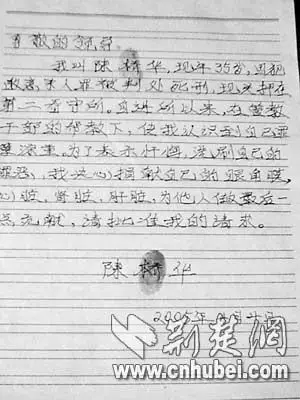 尊敬的领导:
我叫陈树华,现年35岁,因犯
故意杀人罪被判处死刑,现关押在
第二看守所。自进所以来,在管教
干部的帮教下,使我认识到自己罪
孽深重。为了表示忏悔,洗刷自己的
罪恶,我决心捐献自己的眼角膜、
心脏,肾脏,肝脏,为他人做最后一
点贡献,请批准我的请求。
陈树华
2005年
荆楚网
www.cnhubei.com